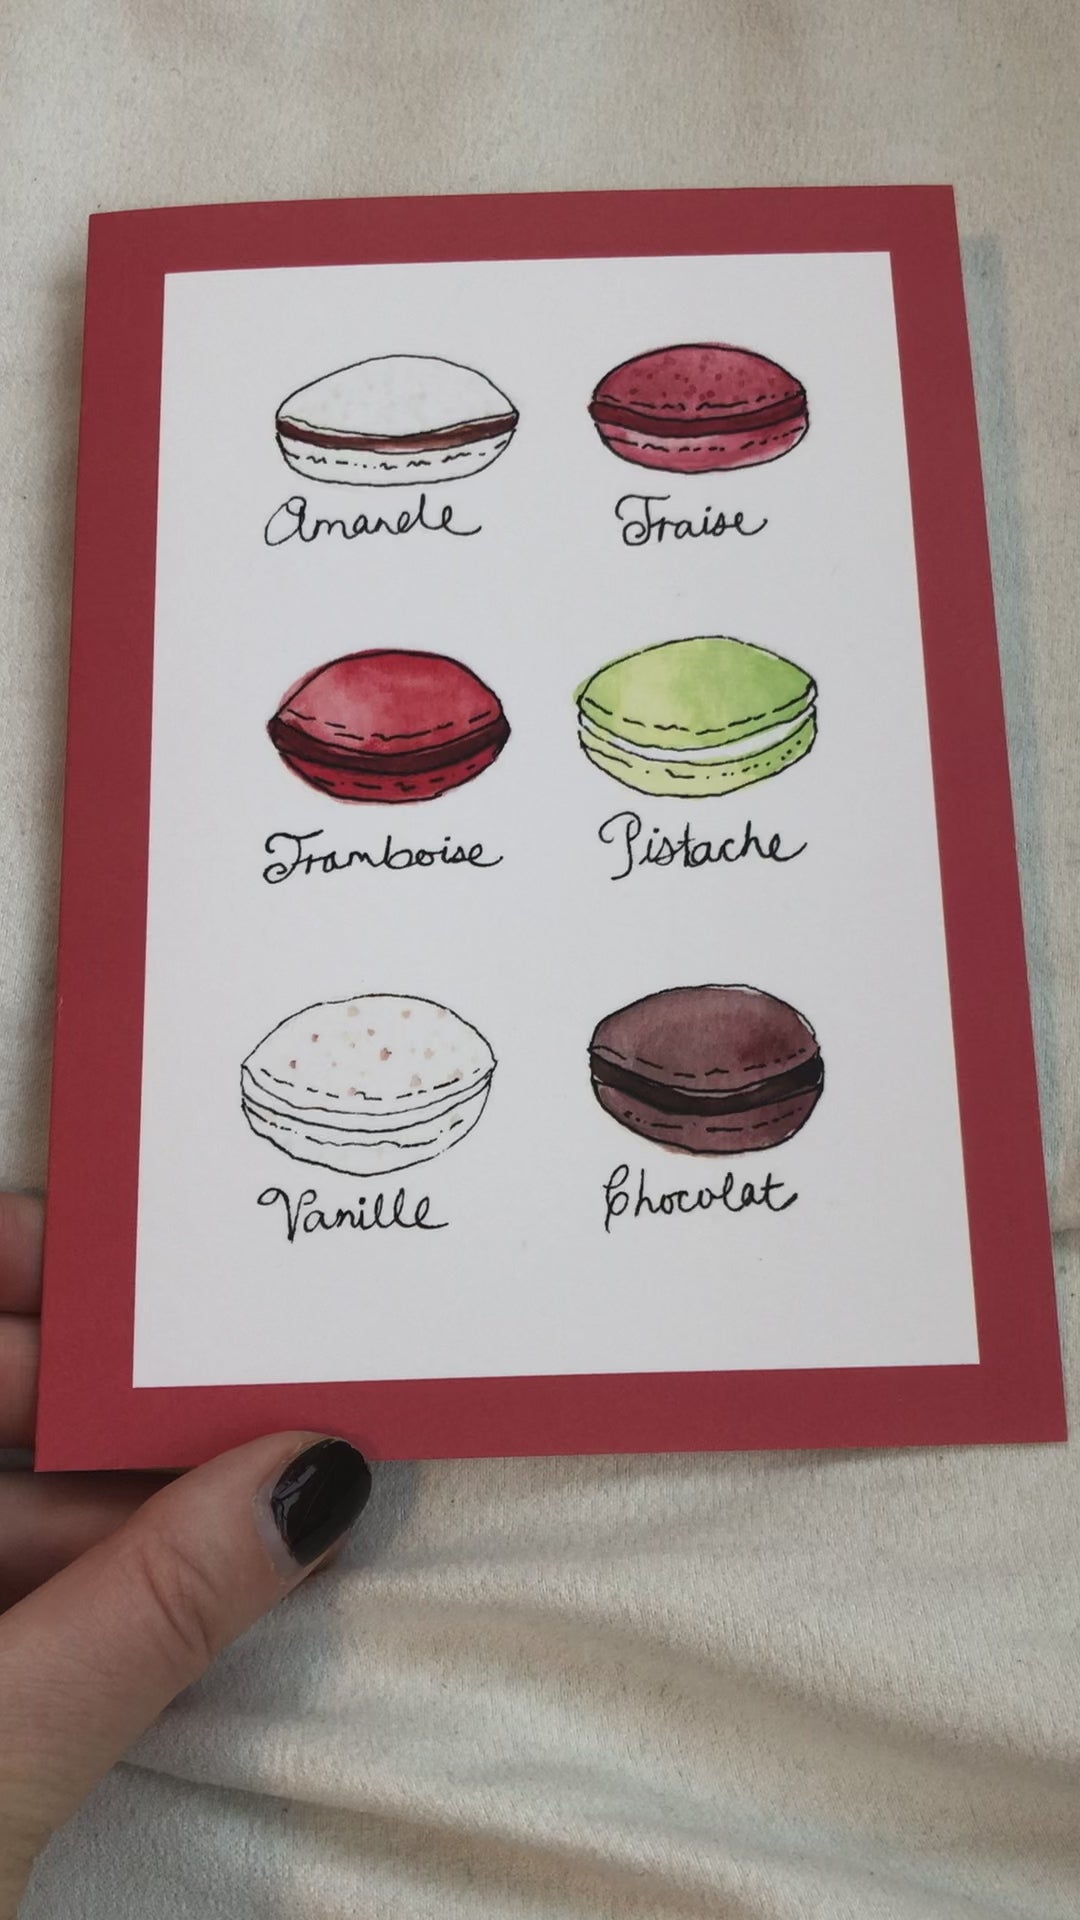 Amande
Fraise
Framboise
Pistache
Vanille
Chocolat